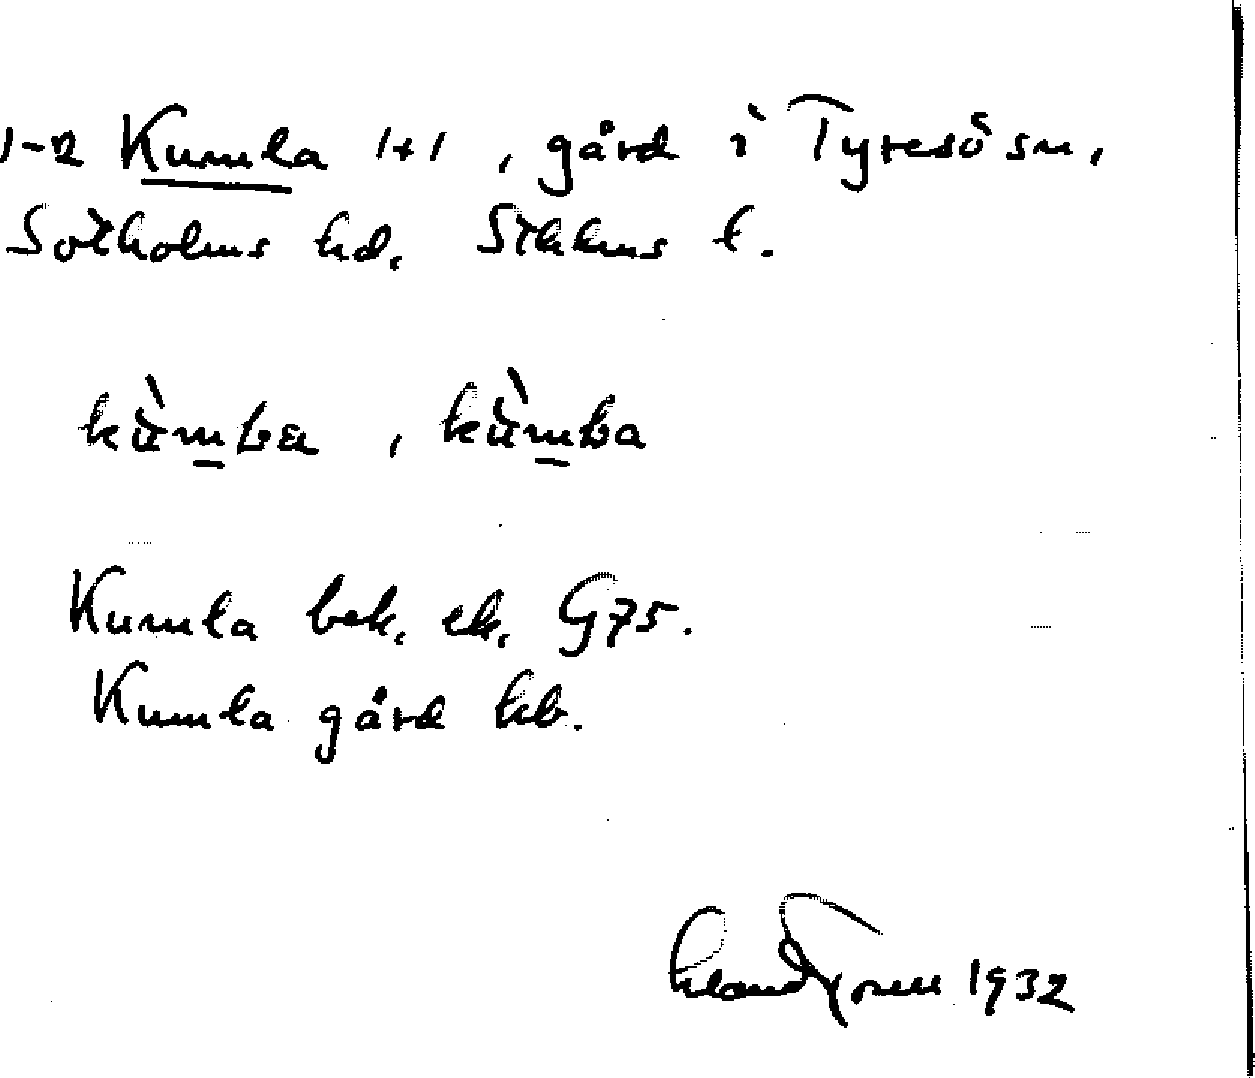 1-2 Kumla 1+1, gård i Tyresö sn,
Sotholms hd. Sthlms l.
kùmla, kùmla
Kumla bek. ek. G75.
Kumla gård kb.
1932